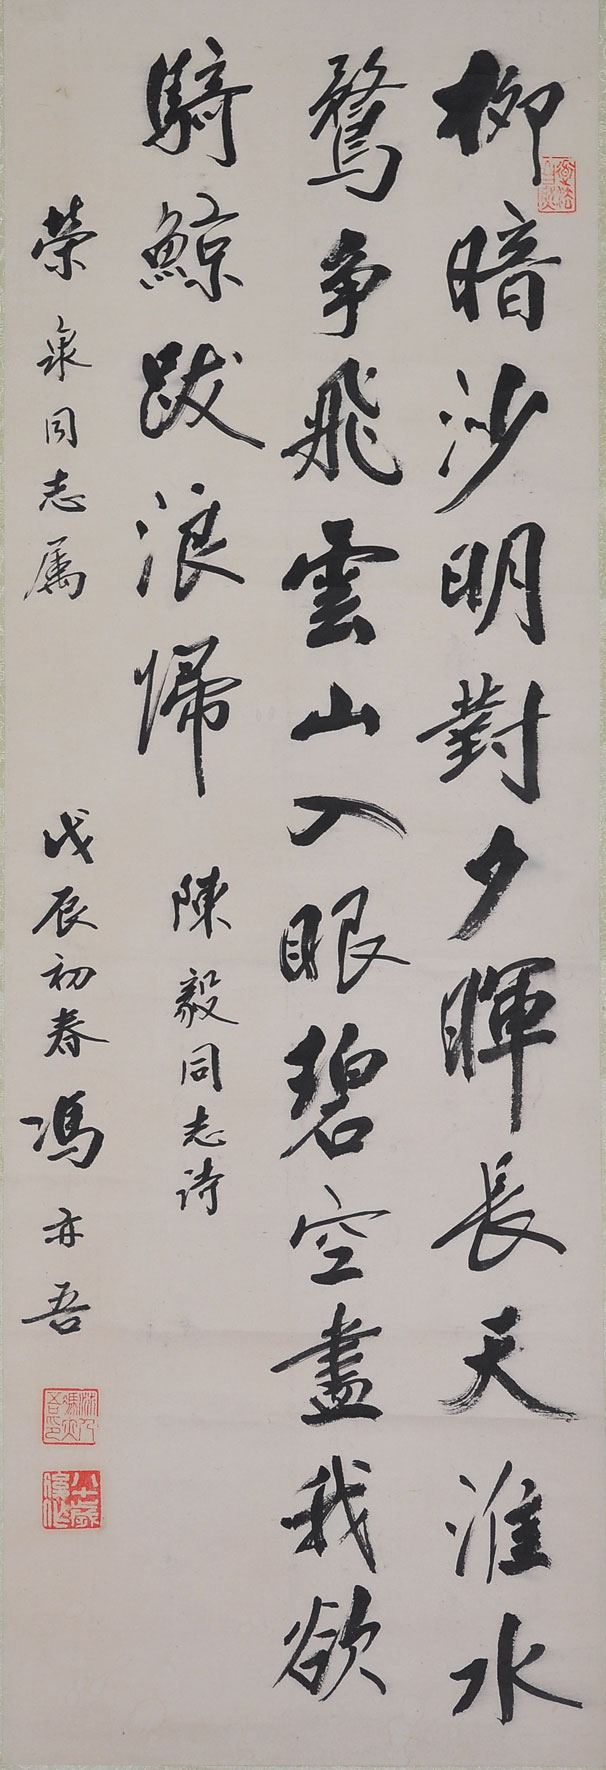 柳暗沙明對夕暉長天淮水
鶩爭飛雲山入眼碧空盡我欲
騎鯨踏浪歸
陳毅同志詩
榮泉同志属
戊辰初春馮亦吾